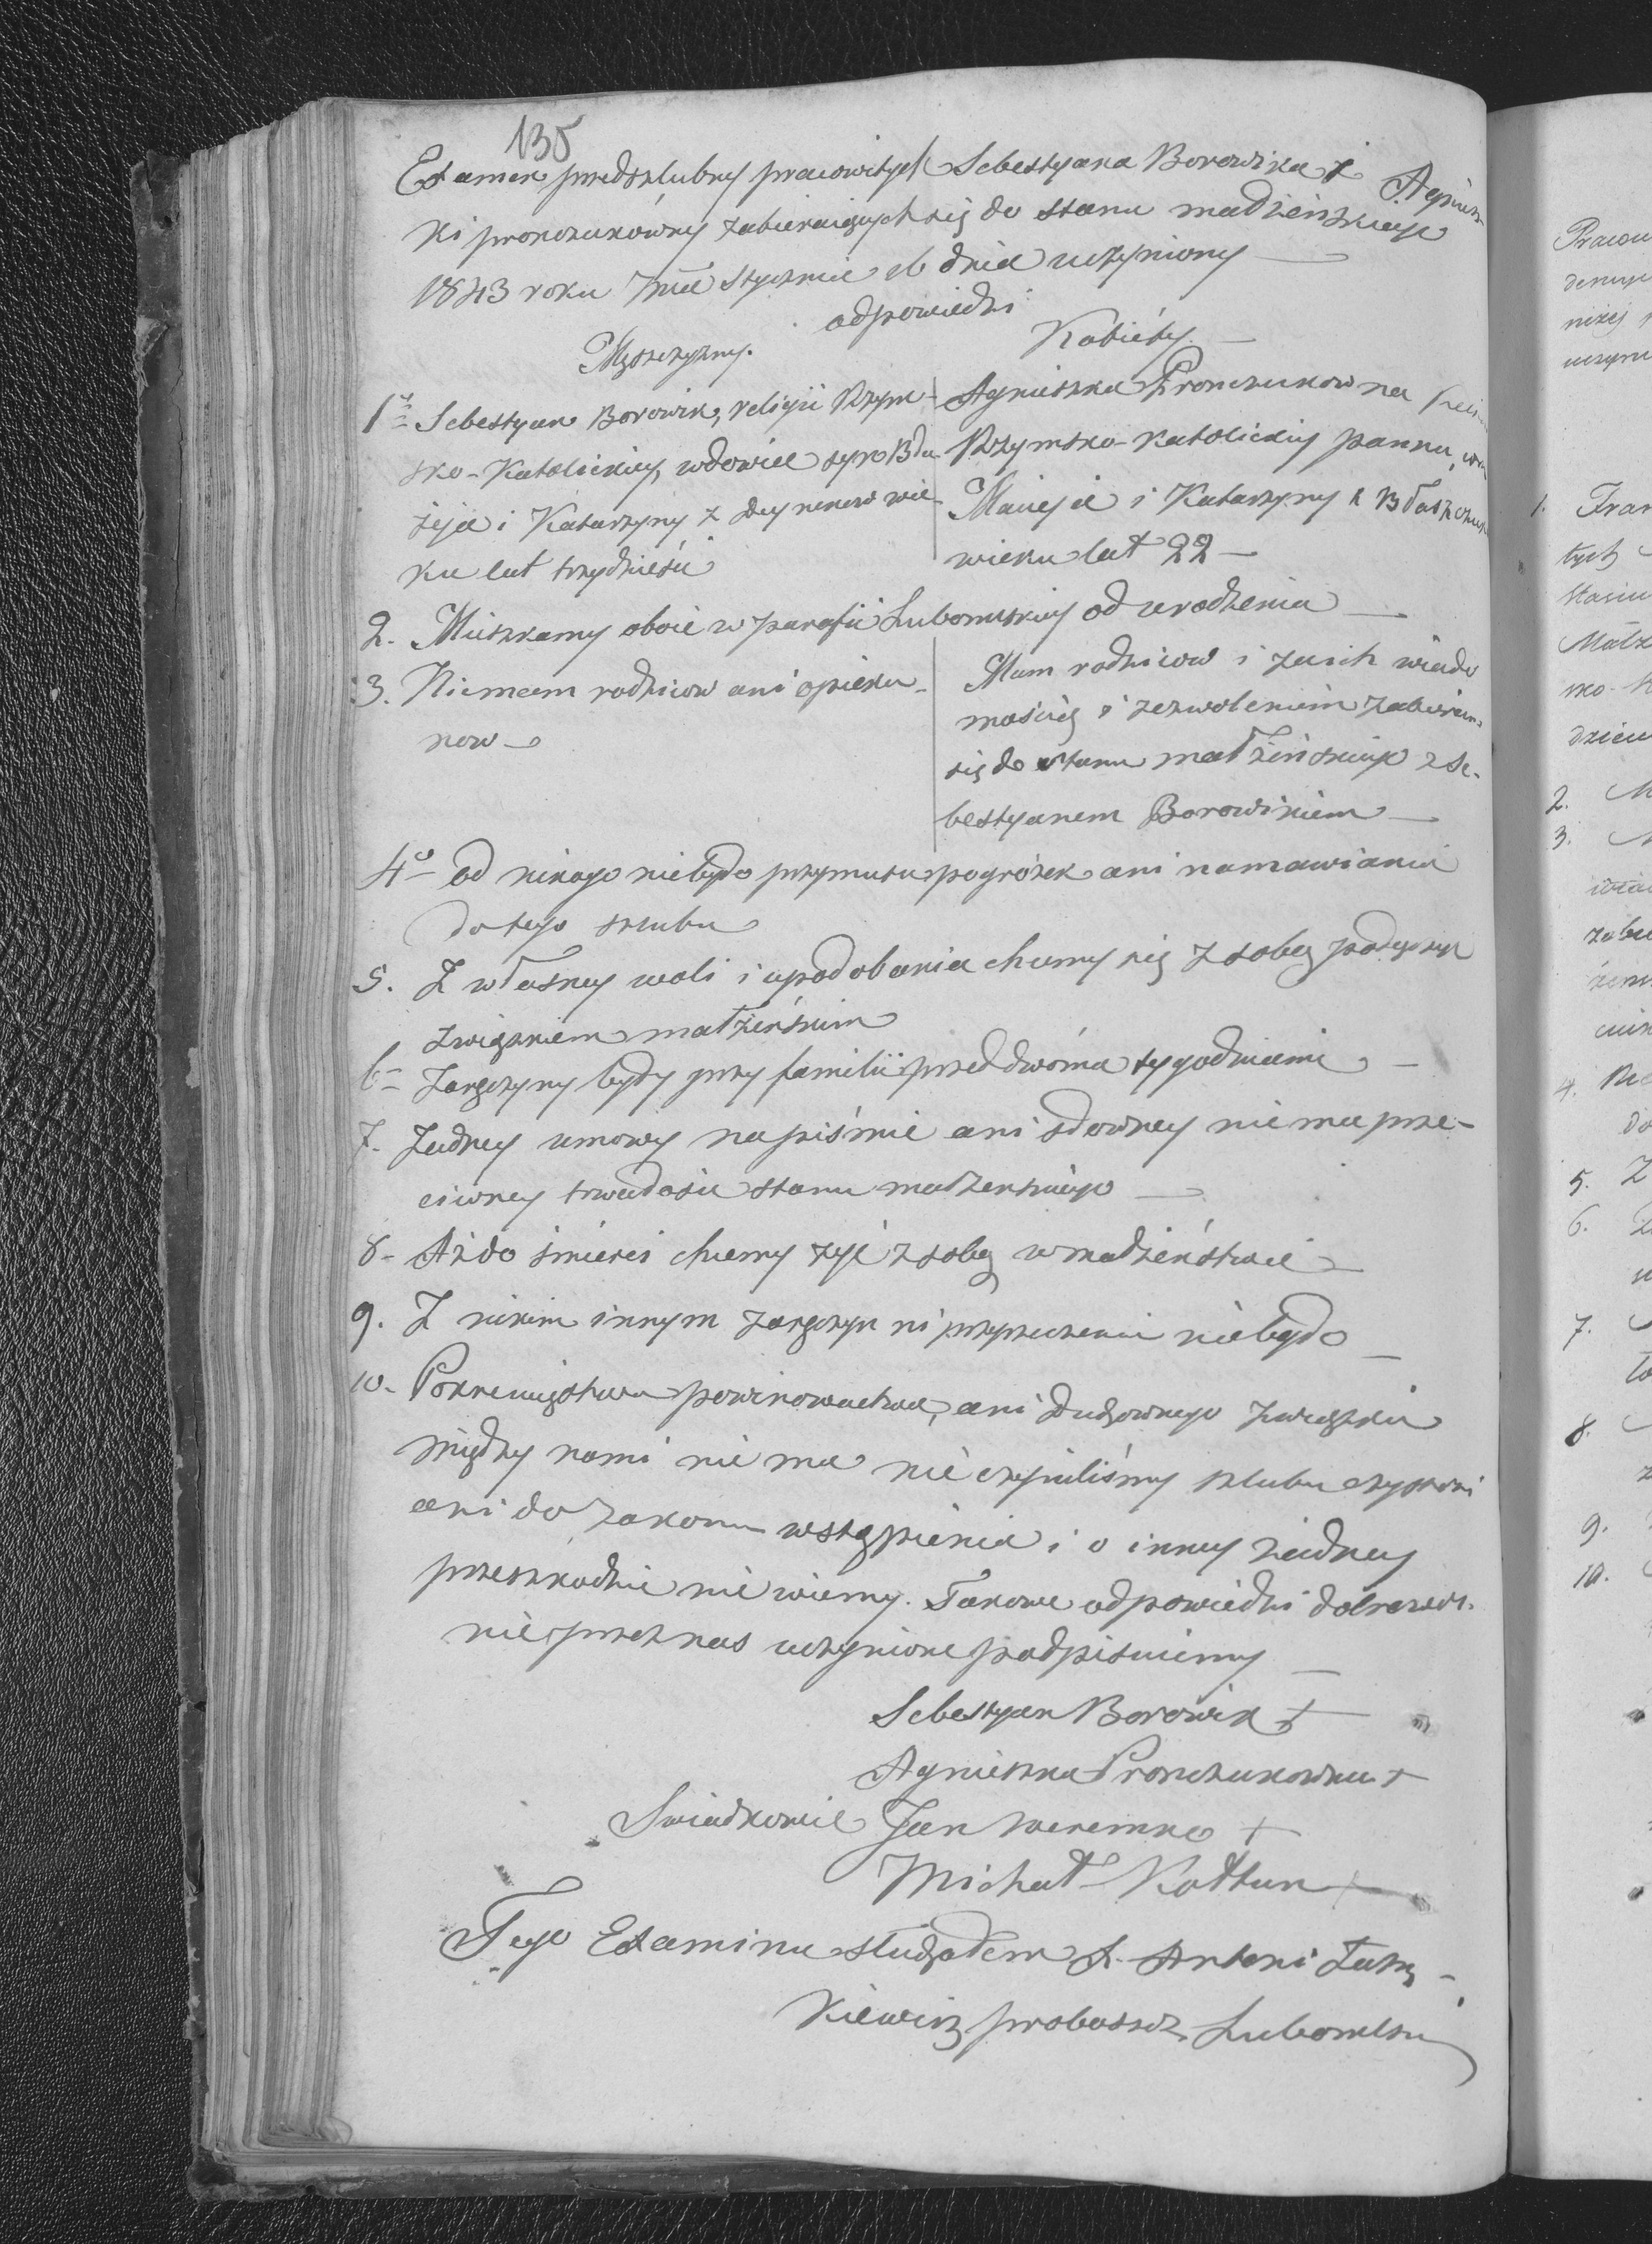 135
Examen przedszlubny pracowitych Sebestyana Borowika i Agniesz-
ki pronczukówny zabieraiących się do stanu małżeńskiego
1843 roku mca Stycznia 16 dnia uczyniony
odpowiedzi
Męszczyzny. Kobiéty.
1 Sebestyan Borowik, religii Rzym-
sko-Katolickiey, wdowiec syn Bła-
żeja i Katarzyny z wie-
ku lat trzydzieści
Agnieszka Pronczukowna
Rzymsko-Katolickiey panna,
Macieja i Katarzyny z Błaszczuk
wieku lat 22
2. Mieszkamy oboie w parafii Lubomlskiey od urodzenia
3. Niemam rodzicow ani opieku-
now
Mam rodzicow i zaich wiado
mością i zezwoleniem zabieram
się do stanu małżeńskiego z Se-
bestyanem Borowikiem
4o od nikogo niebyło przymusu pogróżek ani namawiania
do tego szlubu
5. Z własney woli i upodobania chcemy się z sobą połączyć
związkiem małżeńskim
6 Zaręczyny były przy familii przed dwóma tygodniami
7. Żadney umowy na piśmie ani słowney niema prze-
ciwney trwałości stanu małżenskiego
8- Aż do śmierci chcemy żyć z sobą w małżeństwie
9. Z nikim innym zaręczyn ni przyrzeczenia niebyło
10. Pokrewięstwa powinowactwa, ani duchownego związku
między nami nie ma nie czyniliśmy szlubu czystości
ani do zakonu wstąpienia i o inney żadney
przeszkodzie nie wiemy. Takowe odpowiedzi dobrowol-
nie przez nas uczynione podpisuiemy
Sebestyan Borowik +
Agnieszka Pronczukowna +
Swiadkowie Jan weremko +
Michał Kołtun +
Tego Examinu słuchałem X. Antoni
kiewicz proboszcz Lubomlski
Pracow
niżej
uczyni
1. Fran
tych
2. M
3.
4. Nie
do
5. Z
6.
7.
8.
9.
10.